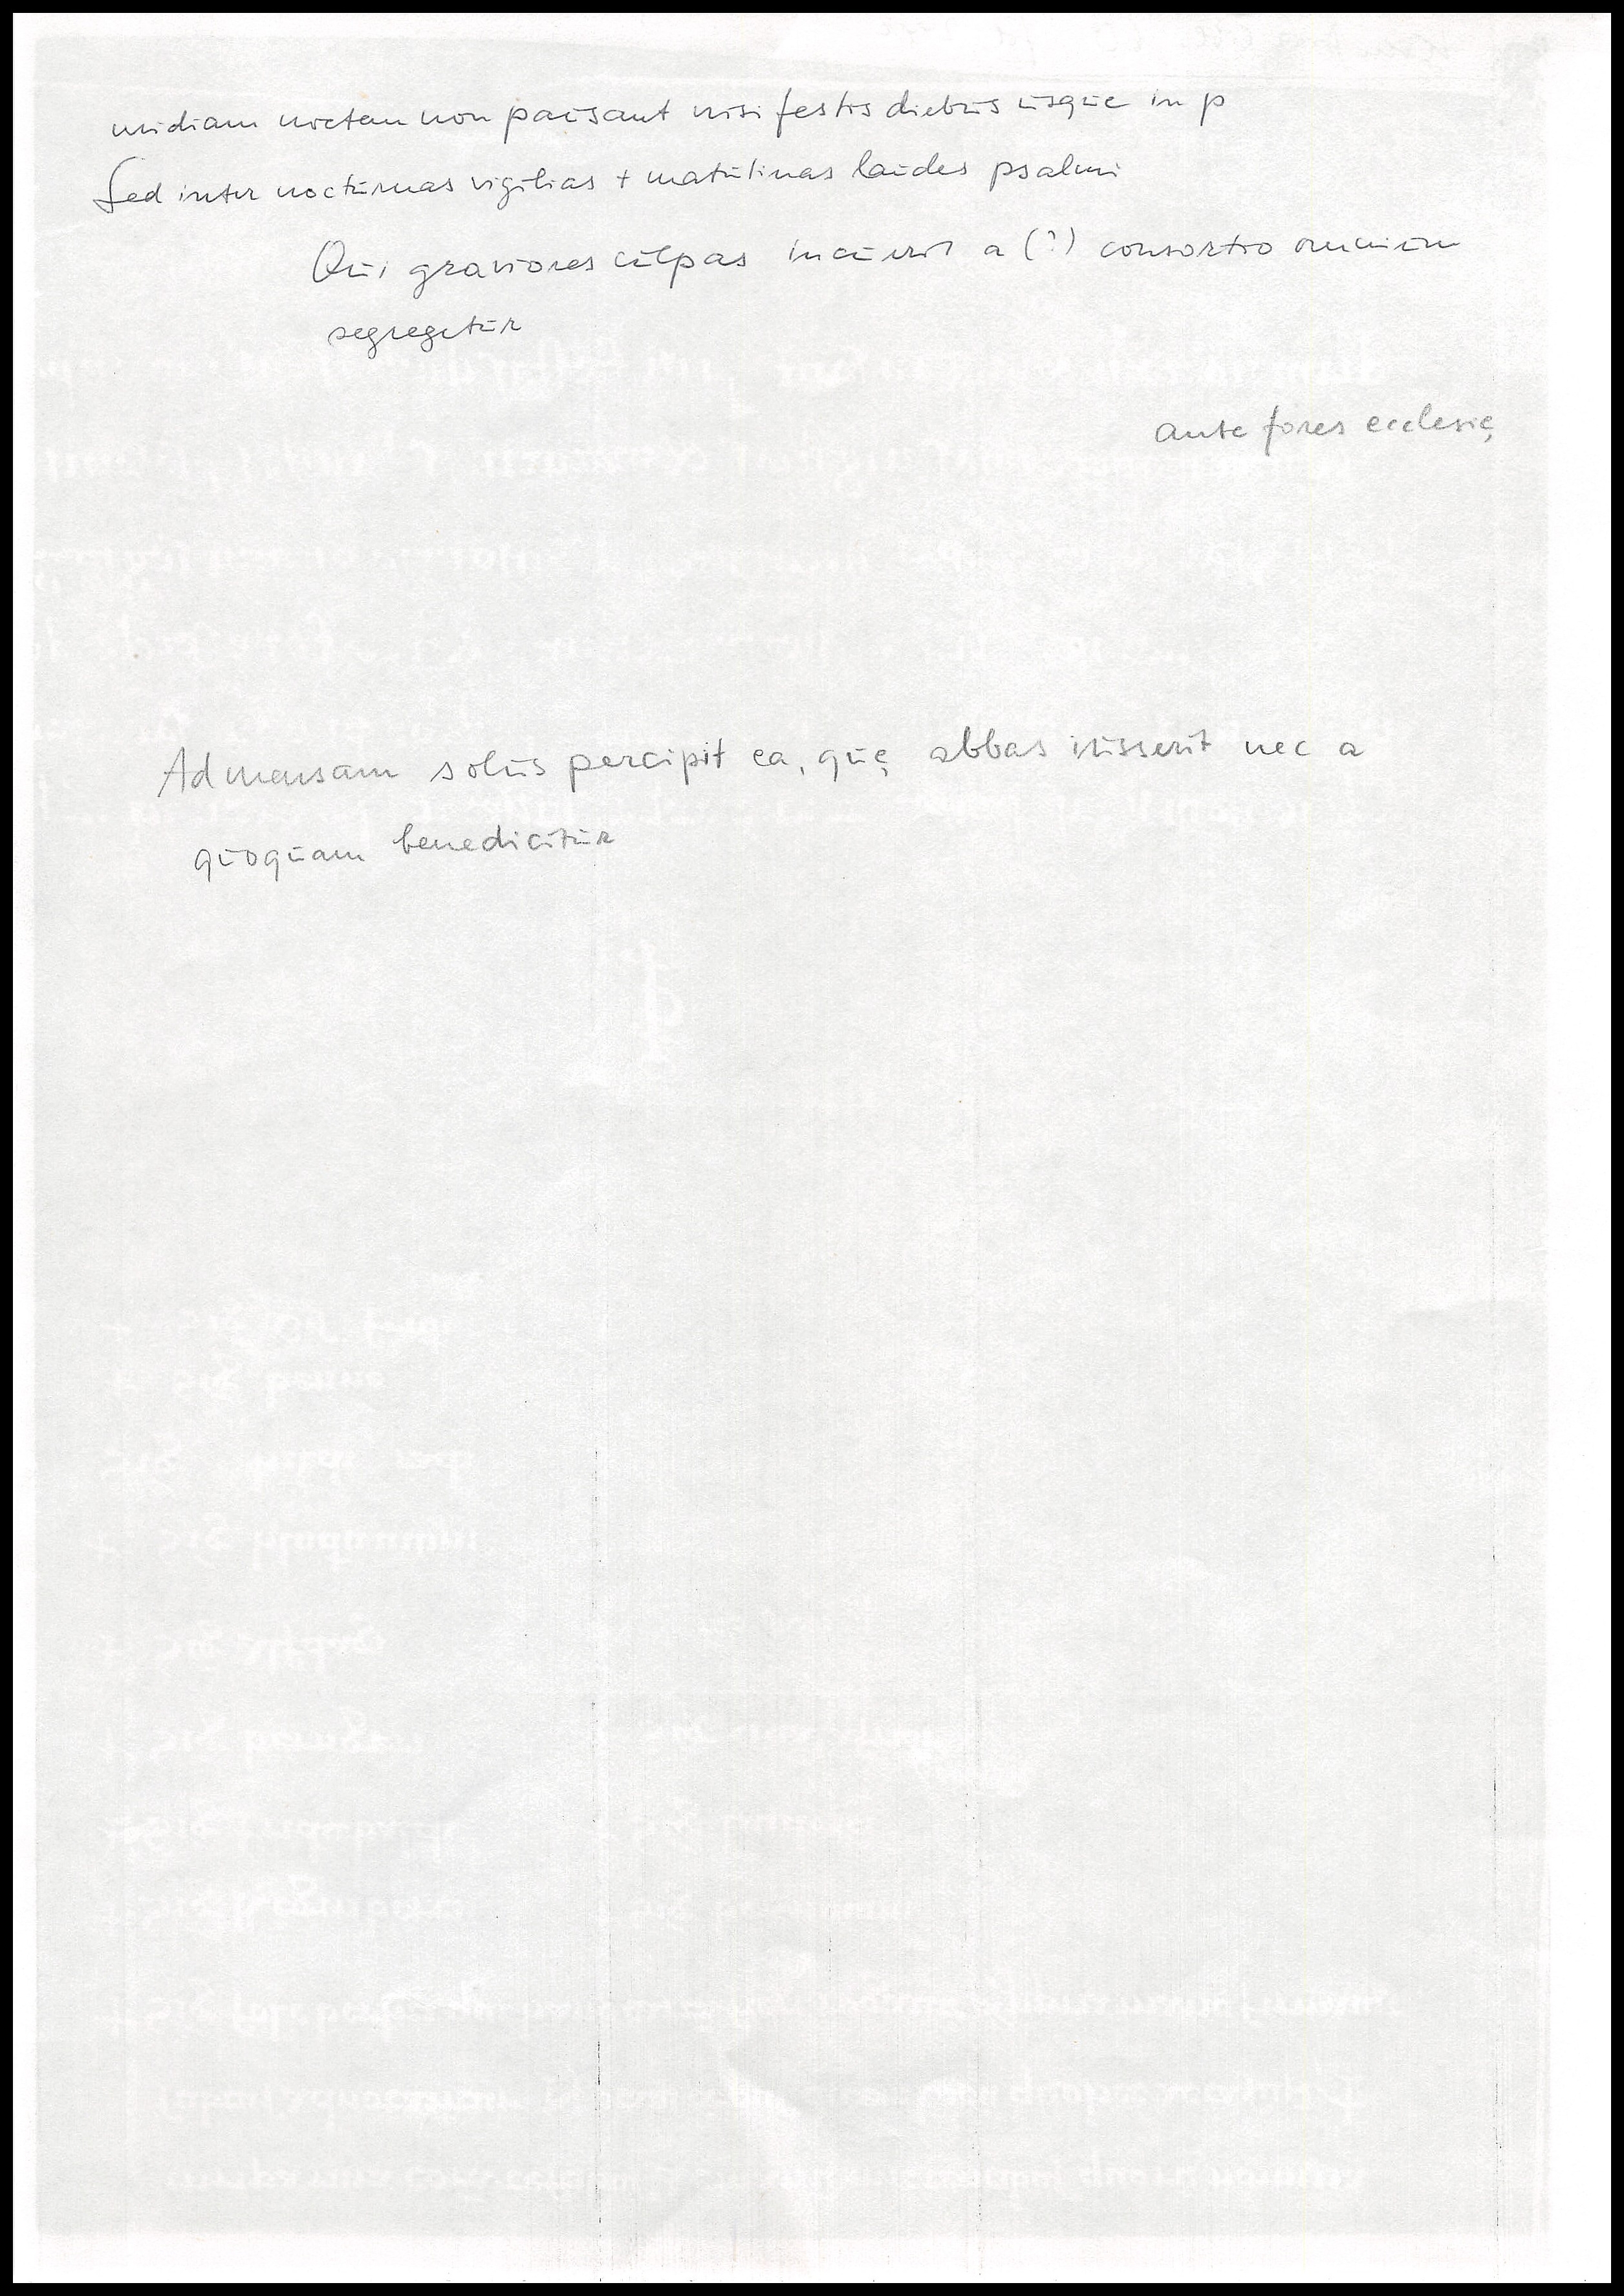 mediam noctem non pausant nisi festis diebus usque in p
Sed inter nocturnas vigilias + matutinas laudes psalmi
Qui graviores culpas incurrit a (?) consortio omnium
segregetur
ante fores ecclesię
Ad mensam solus percipit ea, quę abbas iusserit nec a
quoquam benedicitur